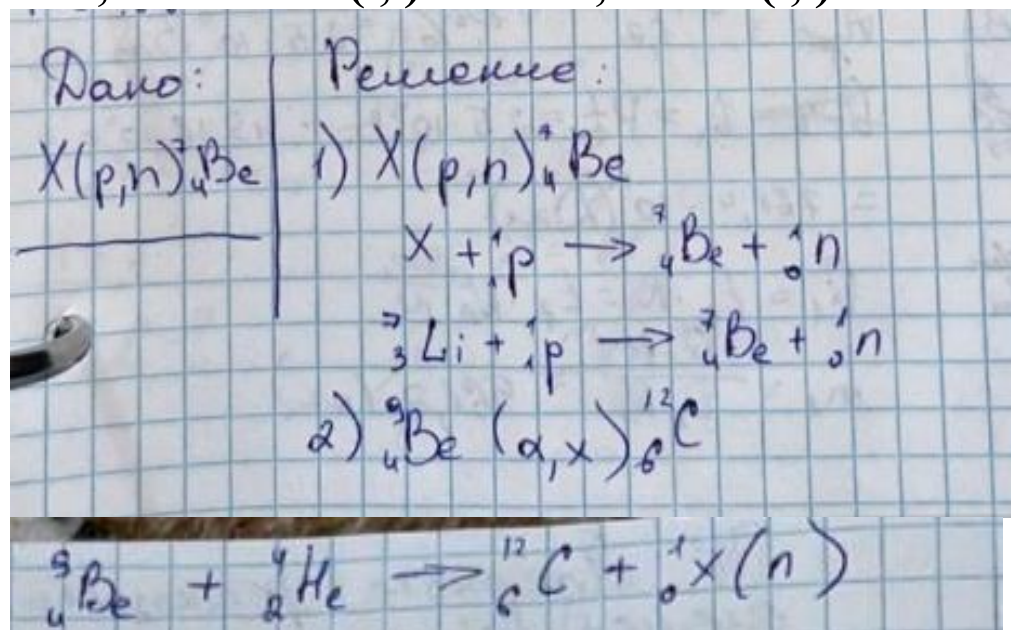 Дано:
X(p,n)⁷₄Be
Решение:
1) X(p,n)⁷₄Be
X + ¹₁p → ⁷₄Be + ¹₀n
⁷₃Li + ¹₁p → ⁷₄Be + ¹₀n
2) ⁹₄Be (α,x) ¹²₆C
⁹₄Be + ⁴₂He → ¹²₆C + ¹₀x(n)